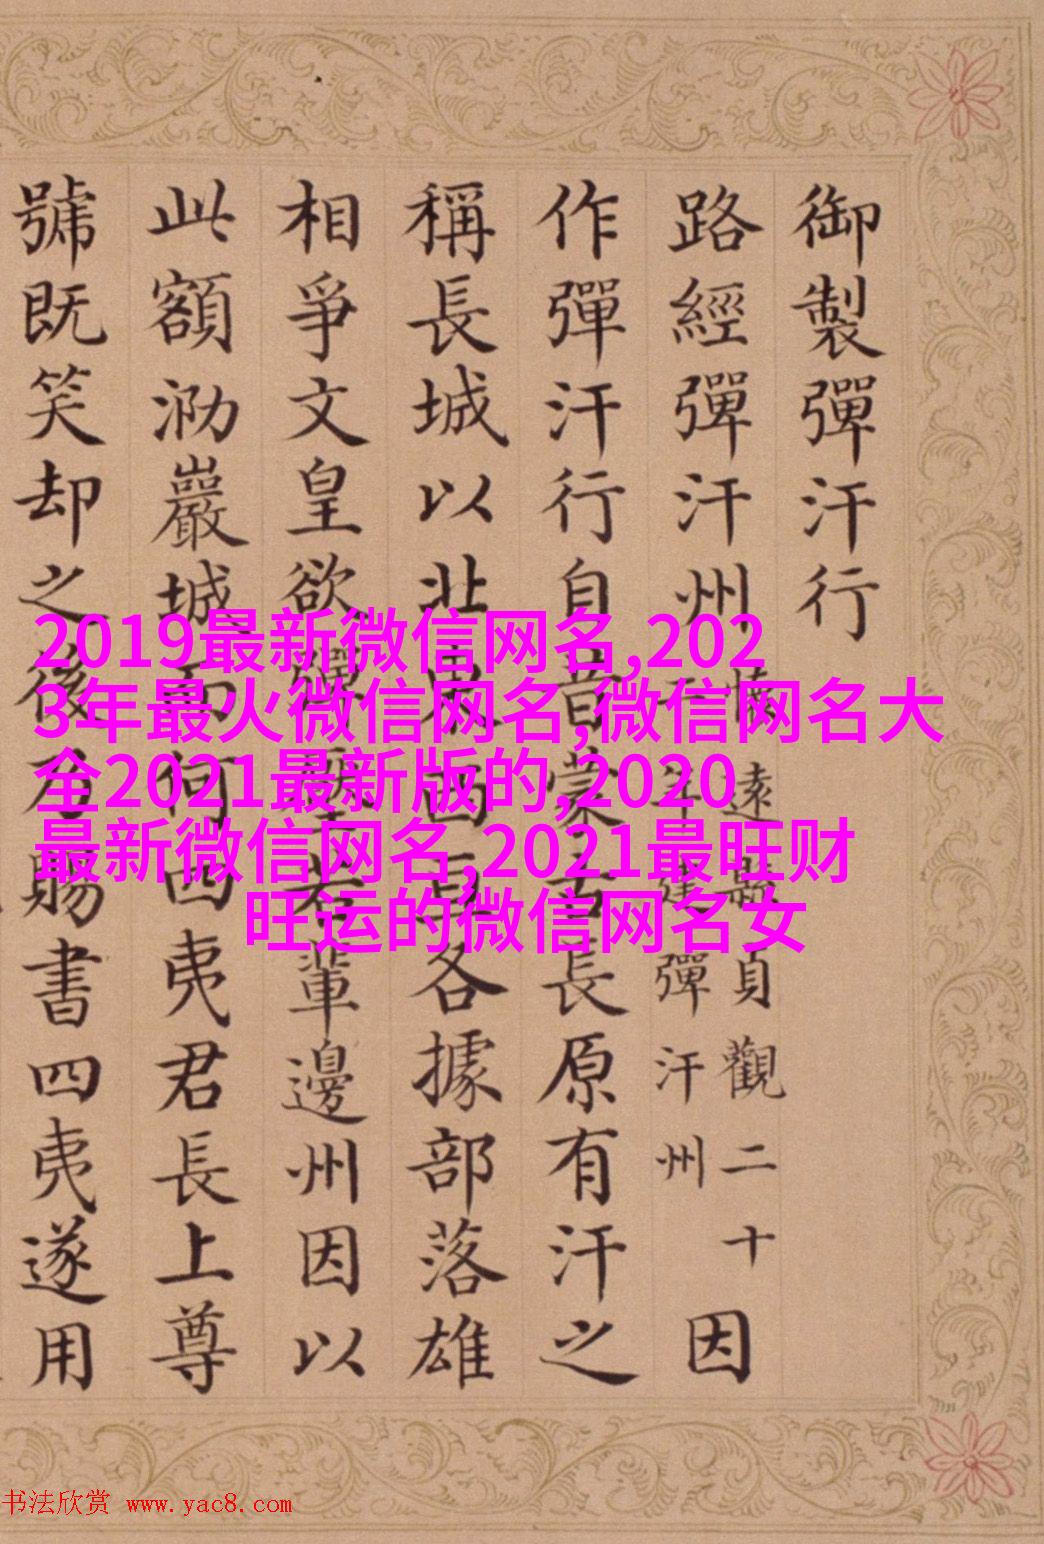 御製彈汗行
路經彈汗州
懷遠縣貞觀二十
年建彈汗州
因
作彈汗行自昔蒙古長原有汗之
稱長城以北東西各據部落雄
相爭文皇欲彈壓若輩邊州因以
此額泐巖城而何四夷君長上尊
號既笑却之後乃賜書四夷遂用
2019最新微信网名,202
3年最火微信网名,微信网名大
全2021最新版的,2020
最新微信网名,2021最旺财
旺运的微信网名女
书法欣赏 www.yac8.com